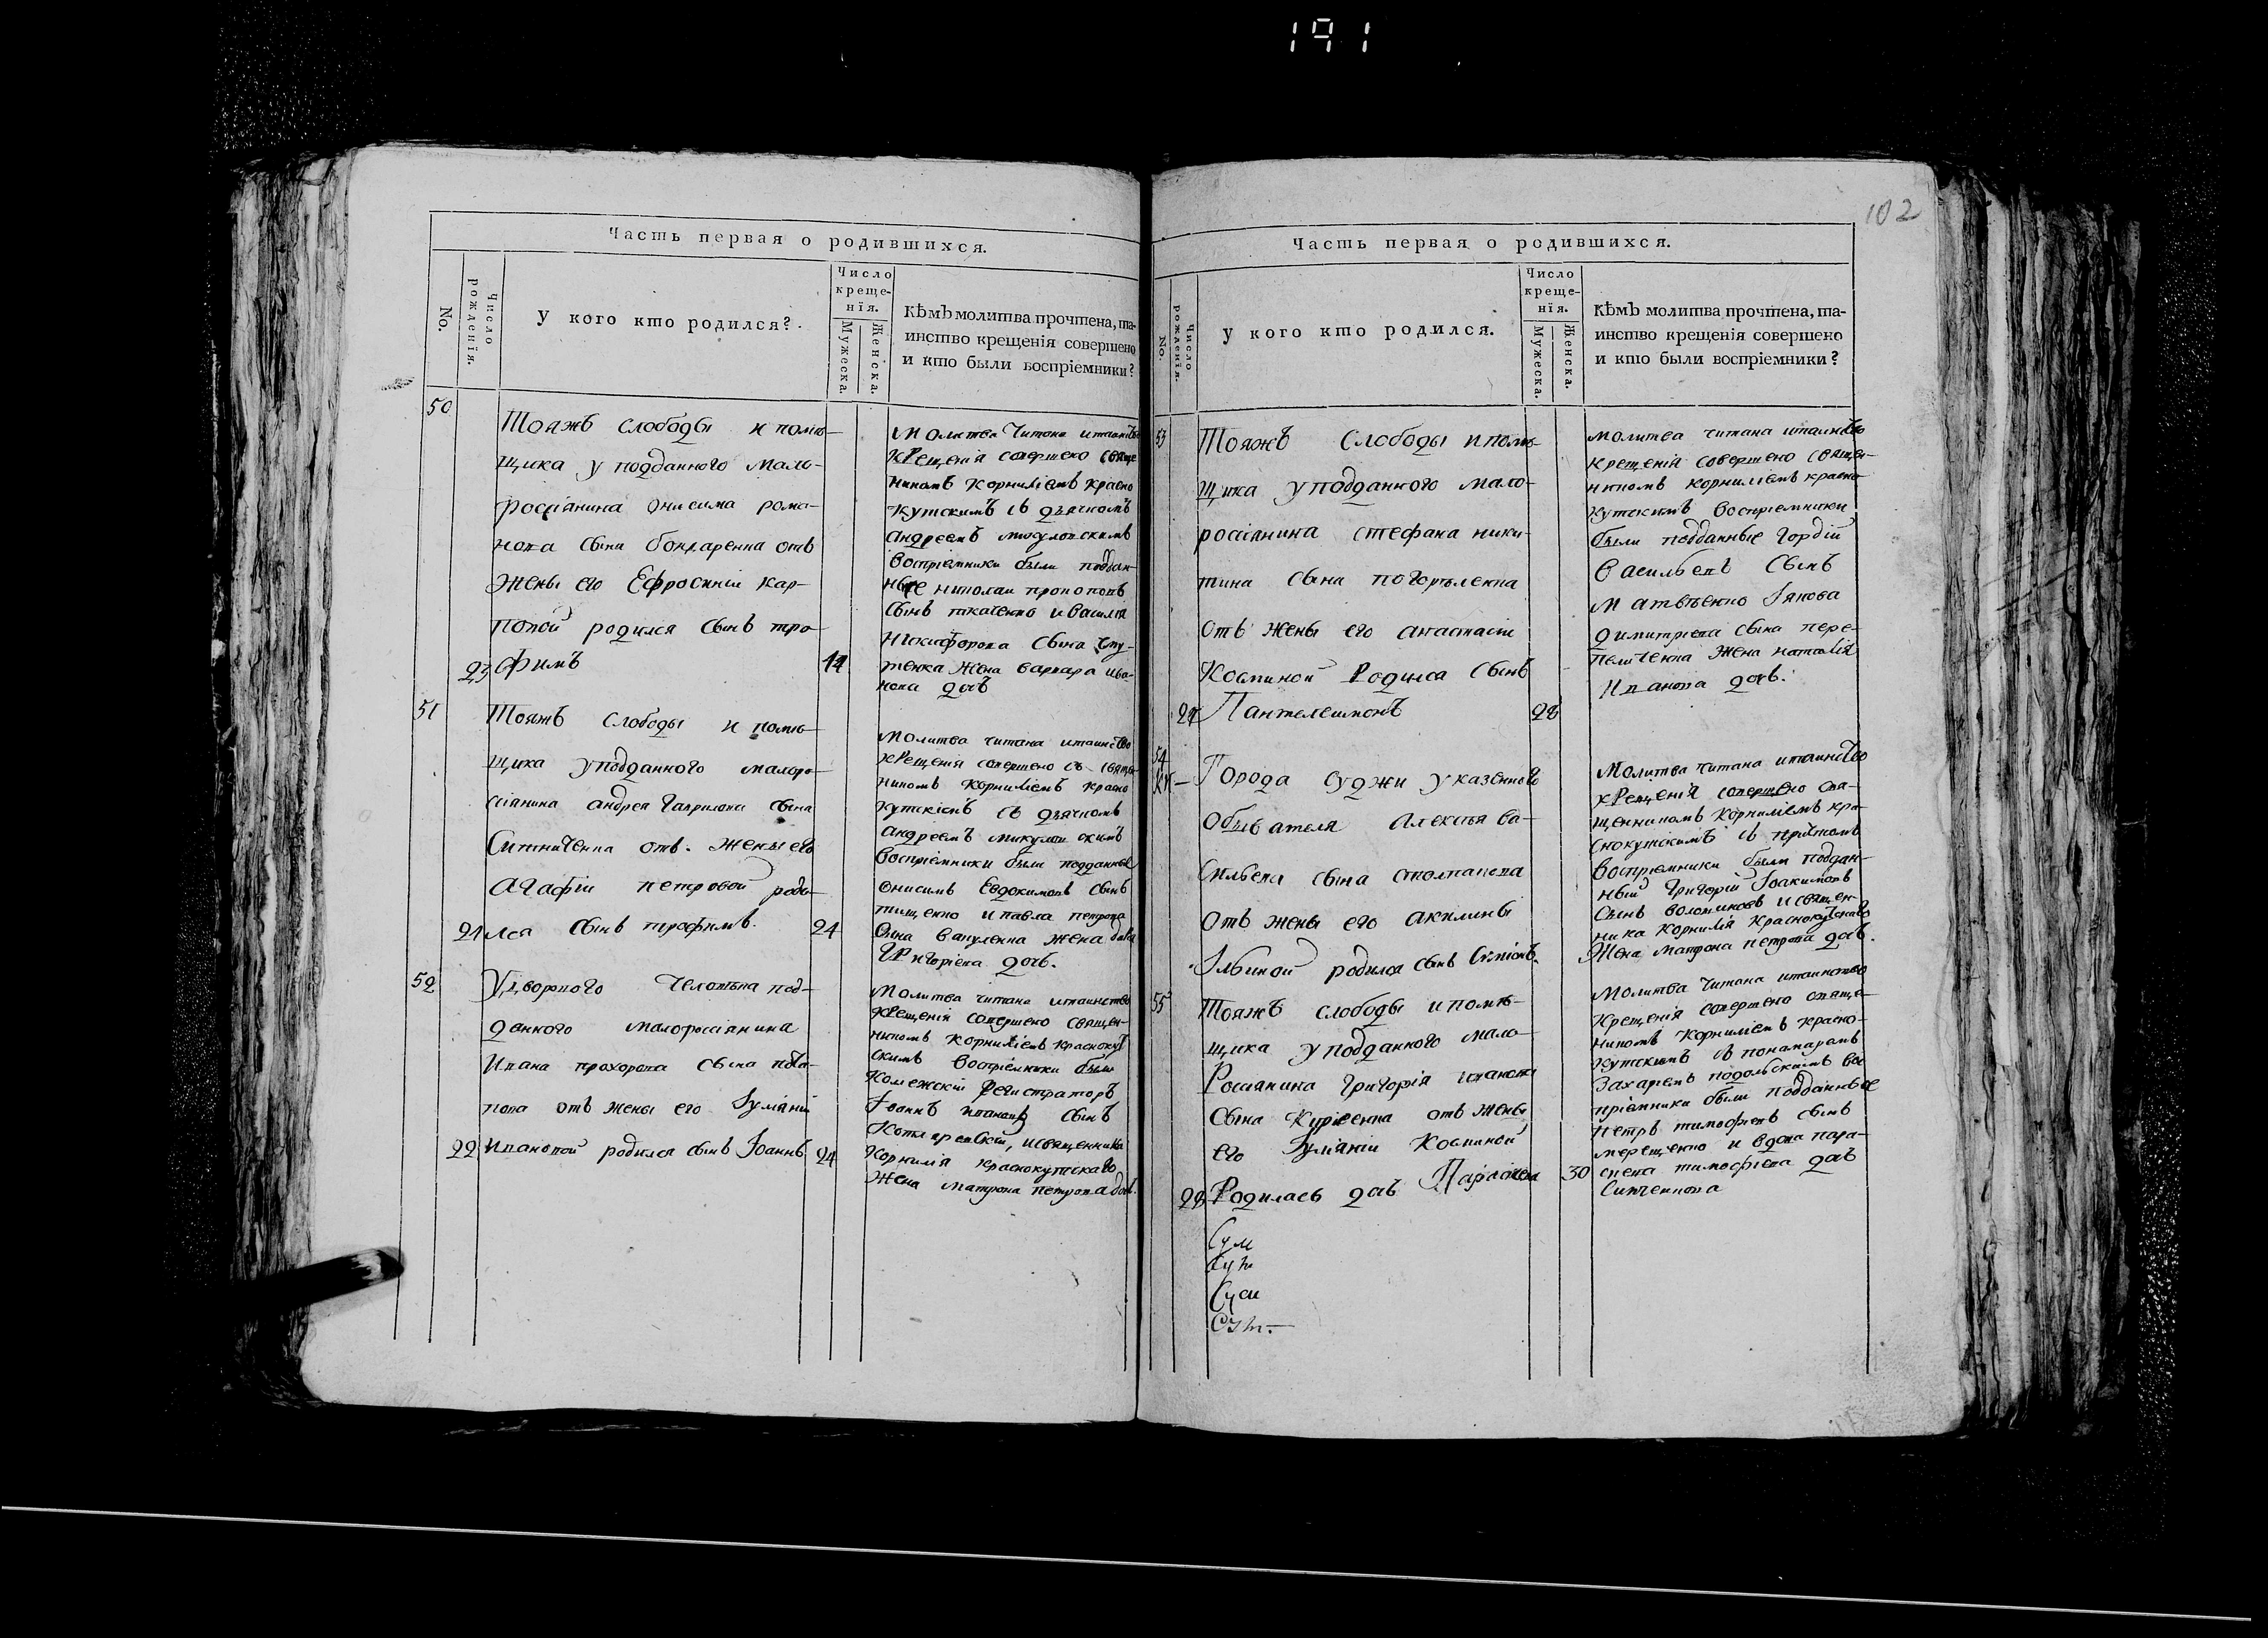 191
102
Часть первая о родившихся.
No.
Число рожденія.
У кого кто родился?
Число
креще-
нія.
Мужеска.
Женска.
Кѣмъ молитва прочтена, та-
инство крещенія совершено
и кто были воспріемники?
50
Тояжъ слободы и помѣ-
щика у подданного мало-
россіянина Онисима рома-
нова сына бондаренка отъ
жены его Ефросиніи кар-
повой родился сынъ тро-
23 фимъ
молитва читана и таинство
крещенія совершено свяще
никомъ Корниліемъ красно
кутскимъ съ дьячкомъ
андреемъ микуловскимъ
воспріемники были поддан-
ные николаи прокоповъ
сынъ ткаченко и василія
никифорова сына
женка жена варвара ива-
нова дочь
51
Тояжъ слободы и помѣ-
щика у подданного малоро-
сіянина андрея Гаврилова сына
Ситниченка отъ жены его
Агафіи петровой роди-
21 лся сынъ трофимъ. 24
Молитва читана и таинство
крещенія совершено съ свяще-
никомъ корниліемъ красно
кутскимъ съ дьячкомъ
андреемъ микуловскимъ
воспріемники были подданные
Онисимъ Евдокимовъ сынъ
тищенко и павла петрова
сына вакуленка жена
Григоріева дочь.
52
У дворового человѣка под-
данного малороссіянина
Ивана прохорова сына
пова отъ жены его Іуліаніи
22 ивановой родился сынъ Іоаннъ 24
Молитва читана и таинство
крещенія совершено священ-
никомъ Корниліемъ краснокут
скимъ воспріемники были
Колежскій регистраторъ
Іоаннъ ивановъ сынъ
Котляревскій, и священника
Корнилія краснокутскаго
жена матрона петрова дочь.
Часть первая о родившихся.
No.
Число рожденія.
У кого кто родился.
Число
креще-
нія.
Мужеска.
Женска.
Кѣмъ молитва прочтена, та-
инство крещенія совершено
и кто были воспріемники?
53
Тояжъ Слободы и помѣ-
щика у подданного мало-
россіянина стефана ники-
тина сына погорѣленка
отъ жены его анастасіи
Косминой Родился сынъ
27 Пантелеимонъ 28
молитва читана и таинство
крещенія совершено священ-
никомъ корниліемъ красно-
кутскимъ воспріемники
были подданные Гордій
Васильевъ сынъ
матвѣенко Іакова
димитріева сына пере-
пеличенка жена наталія
Иванова дочь.
54
Города суджи у казенного
обывателя Алексѣя ва-
сильева сына столманова
отъ жены его акилины
Ільиной родился сынъ Сѵміонъ.
Молитва читана и таинство
крещенія совершено свя-
щенникомъ корниліемъ кра-
снокутскимъ съ причтомъ
воспріемники были поддан-
ный Григорій Іоакимовъ
сынъ и священ-
ника корнилія краснокутскаго
жена матрона петрова дочь.
55
Тояжъ слободы и помѣ-
щика у подданного мало-
Россіянина Григорія иванова
сына Киріенка отъ жены
его Іуліаніи Косминой
28 Родилась дочь Параскева 30
Молитва читана и таинство
крещенія совершено свяще-
никомъ Корниліемъ красно-
кутскимъ съ понамаремъ
Захаріемъ подольскимъ вос
пріемники были подданные
петръ тимофѣевъ сынъ
терещенко и вдова пара-
скева тимофѣева дочь
Ситченкова
Сум
Сум
Сум